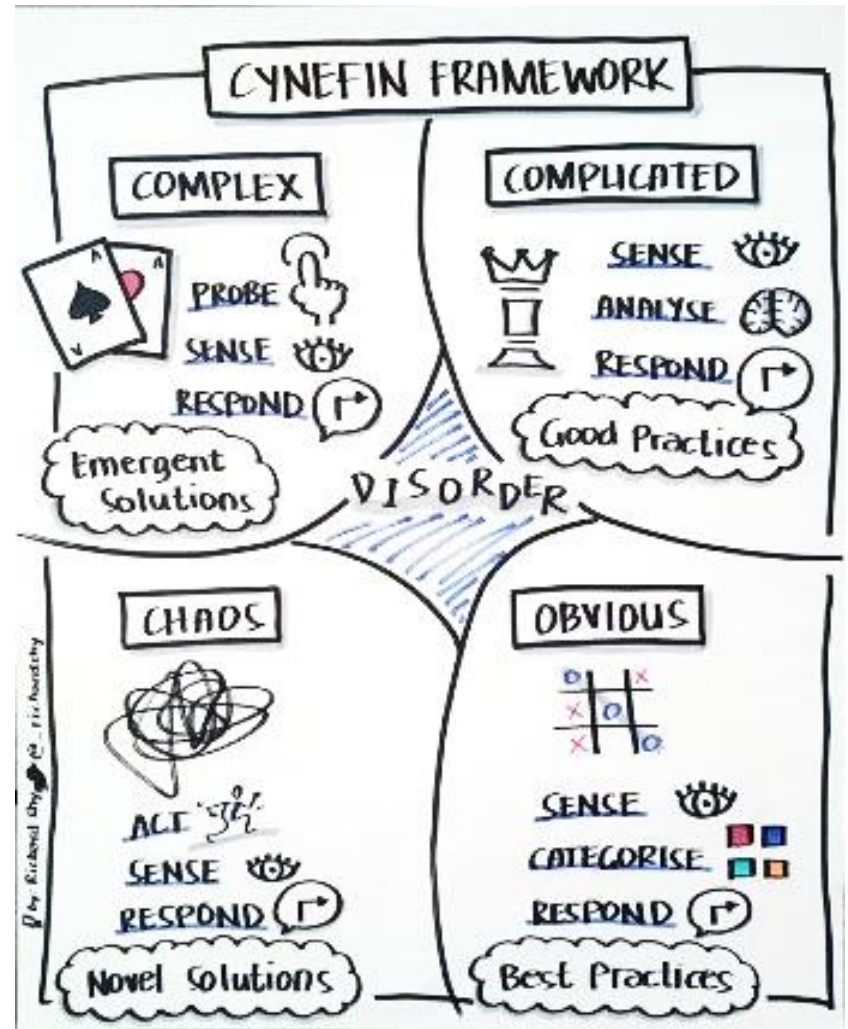 CYNEFIN FRAMEWORK
COMPLEX
A
A
V
PROBE
SENSE
RESPOND
Emergent
Solutions
COMPLICATED
SENSE
ANALYSE
RESPOND
Good Practices
DISORDER
CHAOS
ACT
SENSE
RESPOND
Novel Solutions
OBVIOUS
O X
X O
X O
SENSE
CATEGORISE
RESPOND
Best Practices
by: Richard